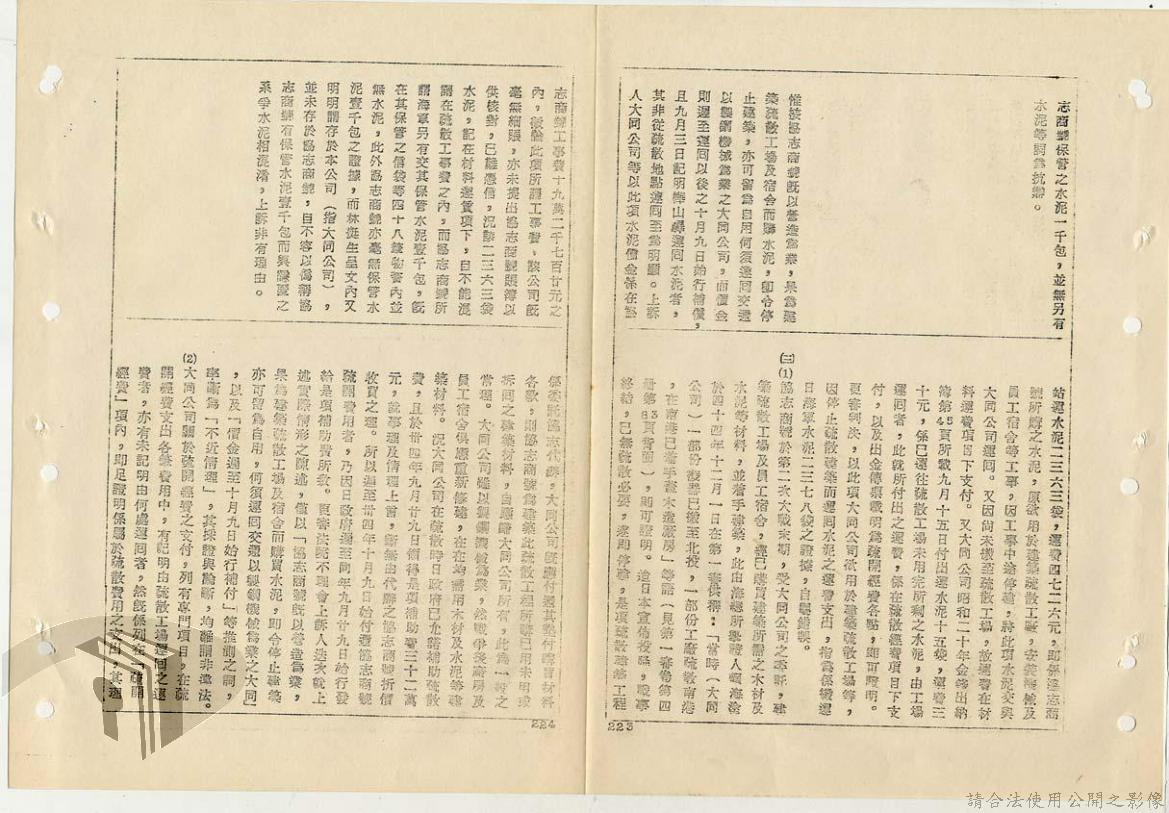 志商號保管之水泥一千包，並無另有
水泥等詞為抗辯。
惟按協志商號既以營造為業，果為建
築疏散工場及宿舍而購水泥，即令停
止建築，亦可留為自用何須運回交還
以製鋼機械為業之大同公司，而價金
則遲至運回以後之十月九日始行補償，
且九月三日記明樺山驛運回水泥者，
其非從疏散地點運回至為明顯。上訴
人大同公司等以此項水泥價金係在協
站運水泥二三六三袋，運費四七二六元，即係協志商
號所購之水泥，原欲用於建築疏散工場，安裝機械及
員工宿舍等工事，因工事中途停建，將此項水泥交與
大同公司運回。又因尚未搬至疏散工場，故運費在材
料運費項目下支付。又大同公司昭和二十年金錢出納
簿第45頁所載九月十五日付出運水泥十五袋，運費三
十元，係已運往疏散工場未用完所剩之水泥，由工場
運回者，此就所付出之運費，係在疏散經費項目下支
付，以及出金傳票載明為疏開經費各點，即可證明。
更審判決，以此項大同公司欲用於建築疏散工場等，
因停止疏散建築而運回水泥之運費支出，指為係搬運
日海軍水泥二三七八袋之證據，自屬錯誤。
(三)(1)協志商號於第二次大戰末期，受大同公司之委託，建
築疏散工場及員工宿舍，經已購買建築所需之木材及
水泥等材料，並着手建築，此由海總所舉證人
於四十四年十二月一日在第一審供稱：「當時（大同
公司）一部份機器已搬至北投，一部份工廠疏散南港
，在南港已着手蓋木造廠房」等語（見第一審卷第四
冊第83頁背面），則可證明。迨日本宣佈投降，戰事
終結，已無疏散必要，遂即停建，是項疏散建築工程
223
志商號工事費十九萬二千七百廿元之
內，微論此項所謂工事費，該公司既
毫無細賬，亦未提出協志商號賬簿以
供核對，已難憑信，況該二三六三袋
水泥，記在材料運賃項下，自不能混
謂在疏散工事費之內，而協志商號所
謂海軍另有交其保管水泥壹千包，既
在其保管之信袋等四十八錢物資內並
無水泥，此外協志商號亦毫無保管水
泥壹千包之證據，而林挺生呈文內又
明明謂存於本公司（指大同公司），
並未存於協志商號，自不容以偽稱協
志商號有保管水泥壹千包而與該號之
系爭水泥相混淆，上訴非有理由。
係委託協志代辦，大同公司既應付還其墊付購買材料
各款，則協志商號為建築此疏散工程所購已用未用或
拆回之建築材料，自應歸大同公司所有，此為一定之
常理。大同公司雖以製鋼機械為業，然戰爭後廠房及
員工宿舍俱應重新修建，在在均需用木材及水泥等建
築材料。況大同公司在疏散時日政府已允諾補助疏散
費，且於卅四年九月廿九日領得是項補助費三十二萬
元，就事理及情理上言，斷無由代辦之協志商號折價
收買之理。所以遲至卅四年十月九日始付還協志商號
疏開費用者，乃因日政府遲至同年九月廿九日始行發
給是項補助費所致。更審法院不理會上訴人迭次就上
述實際情形之陳述，徒以「協志商號既以營造為業，
果為建築疏散工場及宿舍而購買水泥，即令停止建築
亦可留為自用，何須運回交還以製鋼機械為業之大同」
，以及「價金遲至十月九日始行補付」等推測之詞，
率斷為「不近情理」，其採證與論斷，均難謂非違法。
(2)大同公司關於疏開經費之支付，列有專門項目，在疏
開經費支出各筆費用中，有記明由疏散工場運回之運
費者，亦有未記明由何處運回者，然既係列在「疏開
經費」項內，即足證明係屬於疏散費用之支出，其運
224
請合法使用公開之影像